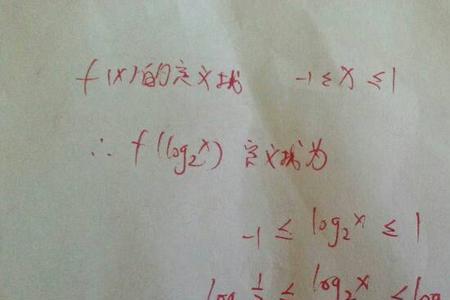 f(x)的定义域 -1≤x≤1
∴ f(log₂x) 定义域为
-1 ≤ log₂x ≤ 1
log ½ ≤ log₂x ≤ log